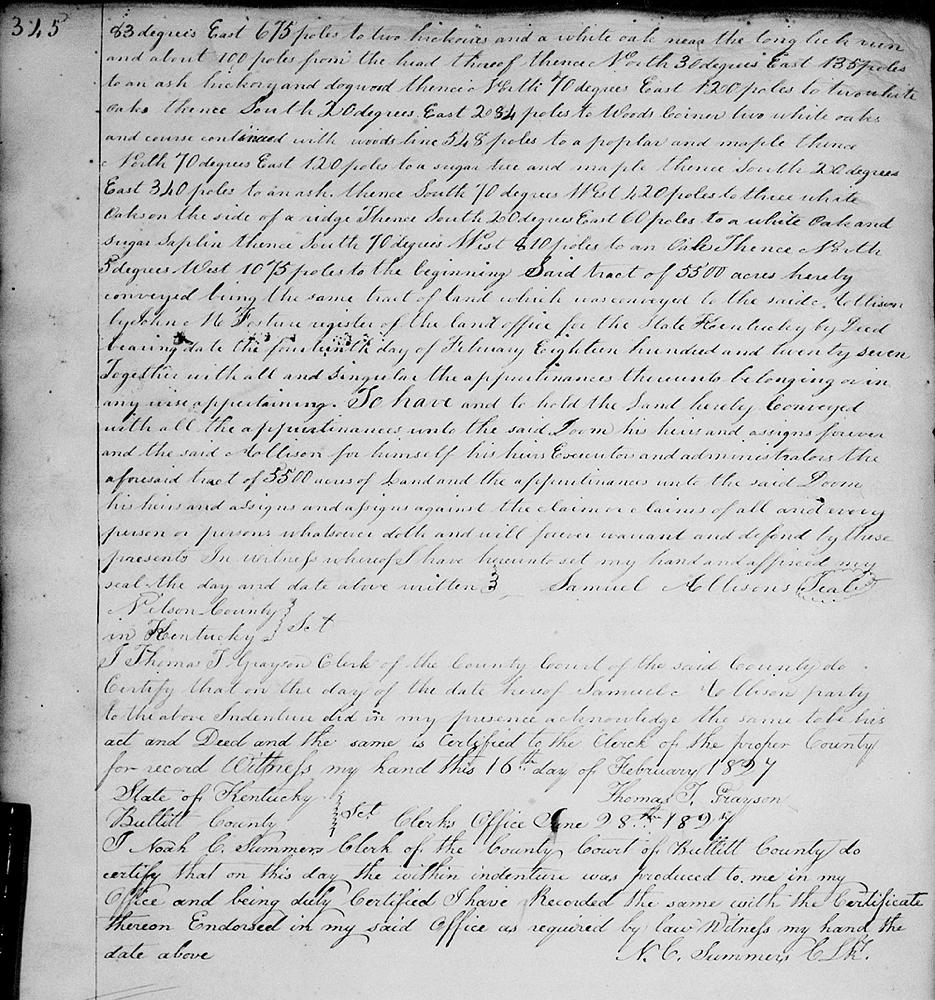 345
83 degrees East 675 poles to two hickories and a white oak near the long lick run
and about 100 poles from the head thereof thence North 30 degrees East 135 poles
to an ash hickory and dogwood thence North 70 degrees East 120 poles to two white
oaks thence South 20 degrees East 284 poles to Woods Corner two white oaks
and course continued with woods line 548 poles to a poplar and maple thence
North 70 degrees East 120 poles to a sugar tree and maple thence South 20 degrees
East 340 poles to an ash. thence South 70 degrees West 420 poles to three white
Oaks on the side of a ridge Thence South 20 degrees East 60 poles to a white Oak and
sugar Saplin thence South 70 degrees West 810 poles to an Oak Thence North
5 degrees West 1075 poles to the beginning Said tract of 5500 acres hereby
conveyed being the same tract of land which was conveyed to the said Allison
by John M Fosture register of the land office for the State Kentucky by Deed
bearing date the fourteenth day of February Eighteen hundred and twenty seven
Together with all and Singular the appurtinances thereunto belonging or in
any wise appertaining. To have and to hold the Land hereby Conveyed
with all the appurtinances unto the said Doom his heirs and assigns forever
and the said Allison for himself his heirs Executors and administrators the
aforesaid tract of 5500 acres of Land and the appurtinances unto the said Doom
his heirs and assigns and assigns against the claim or claims of all and every
person or persons whatsoever doth and will forever warrant and defend by these
presents In witness whereof I have hereunto set my hand and affixed my
seal the day and date above written Samuel Allisons Seal
Nelson County
in Kentucky Sct
I Thomas T. Grayson Clerk of the County Court of the said County do
Certify that on the day of the date hereof Samuel Allison party
to the above Indenture did in my presence acknowledge the same to be his
act and Deed and the same is Certified to the Clerk of the proper County
for record Witness my hand this 16th day of February 1827
Thomas T. Grayson
State of Kentucky
Bullitt County Sct Clerks Office June 28th 1827
I Noah C. Summers Clerk of the County Court of Bullitt County do
certify that on this day the within indenture was produced to me in my
Office and being duly Certified I have Recorded the same with the Certificate
thereon Endorsed in my said Office as required by law Witness my hand the
date above N. C. Summers Clk.